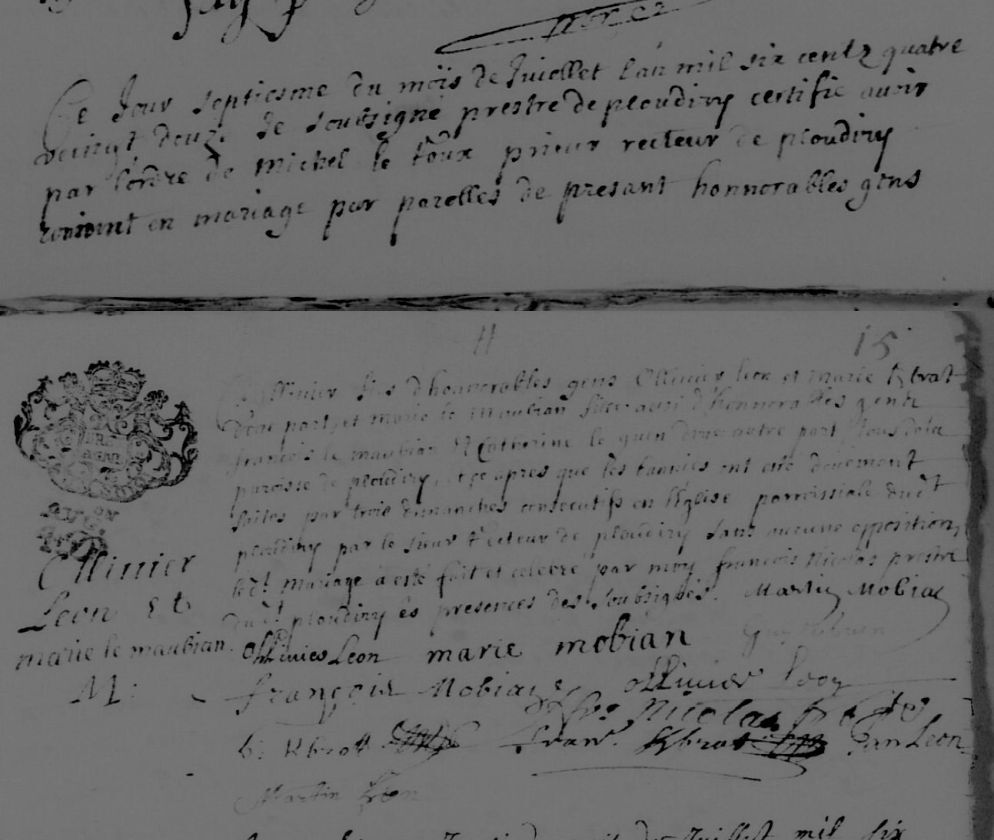 Ce Jour septiesme du mois de Juiellet l'an mil six centz quatre
veingt douze Je soubsigné prestre de ploudiry certifie avoir
par l'ordre de michel le prieur recteur de ploudiry
en mariage par parolles de presant honnorables gens
15
Ollivier fils d'honnorables gens Ollivier leon et marie Kbrat
d'une part, et marie le Maubian fille aussi d'honnorables gents
francois le maubian et Catherine le guen d'une autre part tous de la
paroisse de ploudiry, et ce apres que les bannies ont esté deuement
faites par trois dimanches consecutifs en l'Eglise parroissiale dud't
ploudiry par le sieur recteur de ploudiry sans aucune opposition
led't mariage a esté fait et celebré par moy francois Nicolas prestre
dud't ploudiry és presences des soubsignés. Martin Mobian
Ollivier Leon marie mobian
Ollivier
Leon et
marie le maubian
M:
françois Mobian Ollivier
Nicolas
Kbrat fran. Kbrat Jan Leon
Martin
Juillet mil six